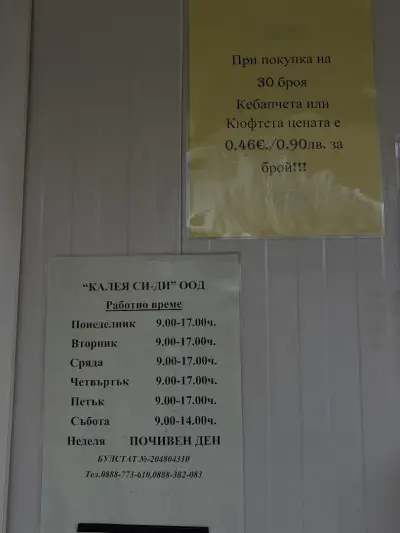 При покупка на
30 броя
Кебапчета или
Кюфтета цената е
0.46€./0.90лв. за
брой!!!
“КАЛЕЯ СИ-ДИ” ООД
Работно време
Понеделник 9.00-17.00ч.
Вторник 9.00-17.00ч.
Сряда 9.00-17.00ч.
Четвъртък 9.00-17.00ч.
Петък 9.00-17.00ч.
Събота 9.00-14.00ч.
Неделя ПОЧИВЕН ДЕН
БУЛСТАТ №-204804310
Тел.0888-773-610,0888-382-083